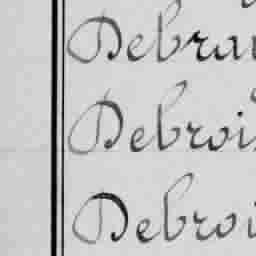 Debrau
Debrois
Debroi